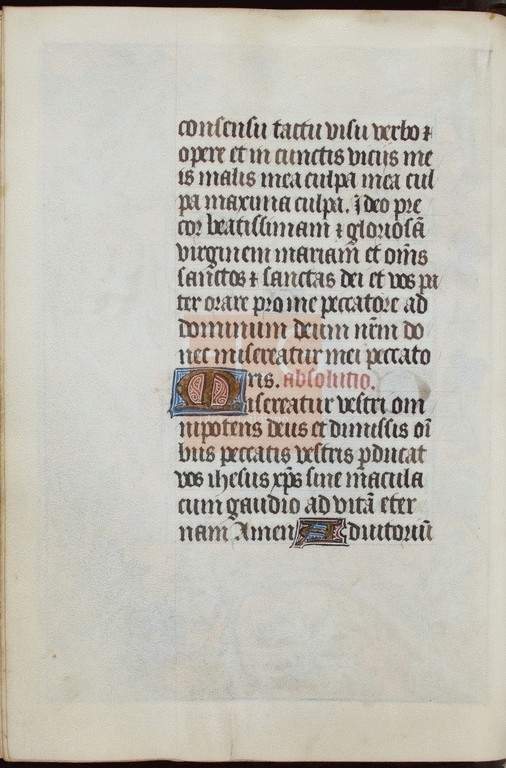 consensu tactu visu verbo ⁊
opere et in cunctis viciis me
is malis mea culpa mea cul
pa maxima culpa. Ideo pre
cor beatissimam ⁊ gloriosā
virginem mariam et om̄s
sanctos ⁊ sanctas dei et vos pa
ter orare pro me peccatore ad
dominum deum nr̄m do
nec misereatur mei peccato
ris. absolutio.
Misereatur vestri om
nipotens deus et dimissis oī
bus peccatis vestris ꝑducat
vos ihesus xp̄s sine macula
cum gaudio ad vitā eter
nam Amen Adiutoriū